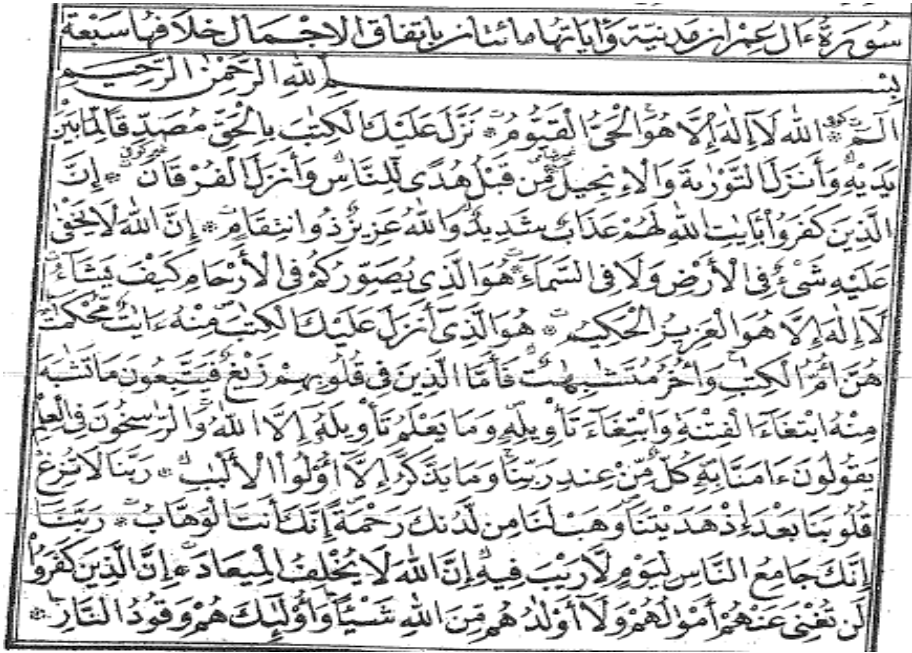 سُورَةُ ءَالِ عِمْرَانَ مَدَنِيَّةٌ وَءَايَاتُهَا مِائَتَانِ بِاتِّفَاقِ الْإِجْمَالِ خِلَافُهَا سَبْعَةٌ
بِسْمِ اللَّهِ الرَّحْمَٰنِ الرَّحِيمِ
الٓمٓ اللَّهُ لَآ إِلَٰهَ إِلَّا هُوَ الْحَيُّ الْقَيُّومُ نَزَّلَ عَلَيْكَ الْكِتَٰبَ بِالْحَقِّ مُصَدِّقًا لِّمَا بَيْنَ
يَدَيْهِ وَأَنزَلَ التَّوْرَىٰةَ وَالْإِنجِيلَ مِن قَبْلُ هُدًى لِّلنَّاسِ وَأَنزَلَ الْفُرْقَانَ إِنَّ
الَّذِينَ كَفَرُواْ بِـَٔايَٰتِ اللَّهِ لَهُمْ عَذَابٌ شَدِيدٌ وَاللَّهُ عَزِيزٌ ذُو انتِقَامٍ إِنَّ اللَّهَ لَا يَخْفَىٰ
عَلَيْهِ شَىْءٌ فِى الْأَرْضِ وَلَا فِى السَّمَآءِ هُوَ الَّذِى يُصَوِّرُكُمْ فِى الْأَرْحَامِ كَيْفَ يَشَآءُ
لَآ إِلَٰهَ إِلَّا هُوَ الْعَزِيزُ الْحَكِيمُ هُوَ الَّذِىٓ أَنزَلَ عَلَيْكَ الْكِتَٰبَ مِنْهُ ءَايَٰتٌ مُّحْكَمَٰتٌ
هُنَّ أُمُّ الْكِتَٰبِ وَأُخَرُ مُتَشَٰبِهَٰتٌ فَأَمَّا الَّذِينَ فِى قُلُوبِهِمْ زَيْغٌ فَيَتَّبِعُونَ مَا تَشَٰبَهَ
مِنْهُ ابْتِغَآءَ الْفِتْنَةِ وَابْتِغَآءَ تَأْوِيلِهِ وَمَا يَعْلَمُ تَأْوِيلَهُ إِلَّا اللَّهُ وَالرَّٰسِخُونَ فِى الْعِلْمِ
يَقُولُونَ ءَامَنَّا بِهِ كُلٌّ مِّنْ عِندِ رَبِّنَا وَمَا يَذَّكَّرُ إِلَّآ أُوْلُواْ الْأَلْبَٰبِ رَبَّنَا لَا تُزِغْ
قُلُوبَنَا بَعْدَ إِذْ هَدَيْتَنَا وَهَبْ لَنَا مِن لَّدُنكَ رَحْمَةً إِنَّكَ أَنتَ الْوَهَّابُ رَبَّنَآ
إِنَّكَ جَامِعُ النَّاسِ لِيَوْمٍ لَّا رَيْبَ فِيهِ إِنَّ اللَّهَ لَا يُخْلِفُ الْمِيعَادَ إِنَّ الَّذِينَ كَفَرُواْ
لَن تُغْنِىَ عَنْهُمْ أَمْوَٰلُهُمْ وَلَآ أَوْلَٰدُهُم مِّنَ اللَّهِ شَيْـًٔا وَأُوْلَٰٓئِكَ هُمْ وَقُودُ النَّارِ